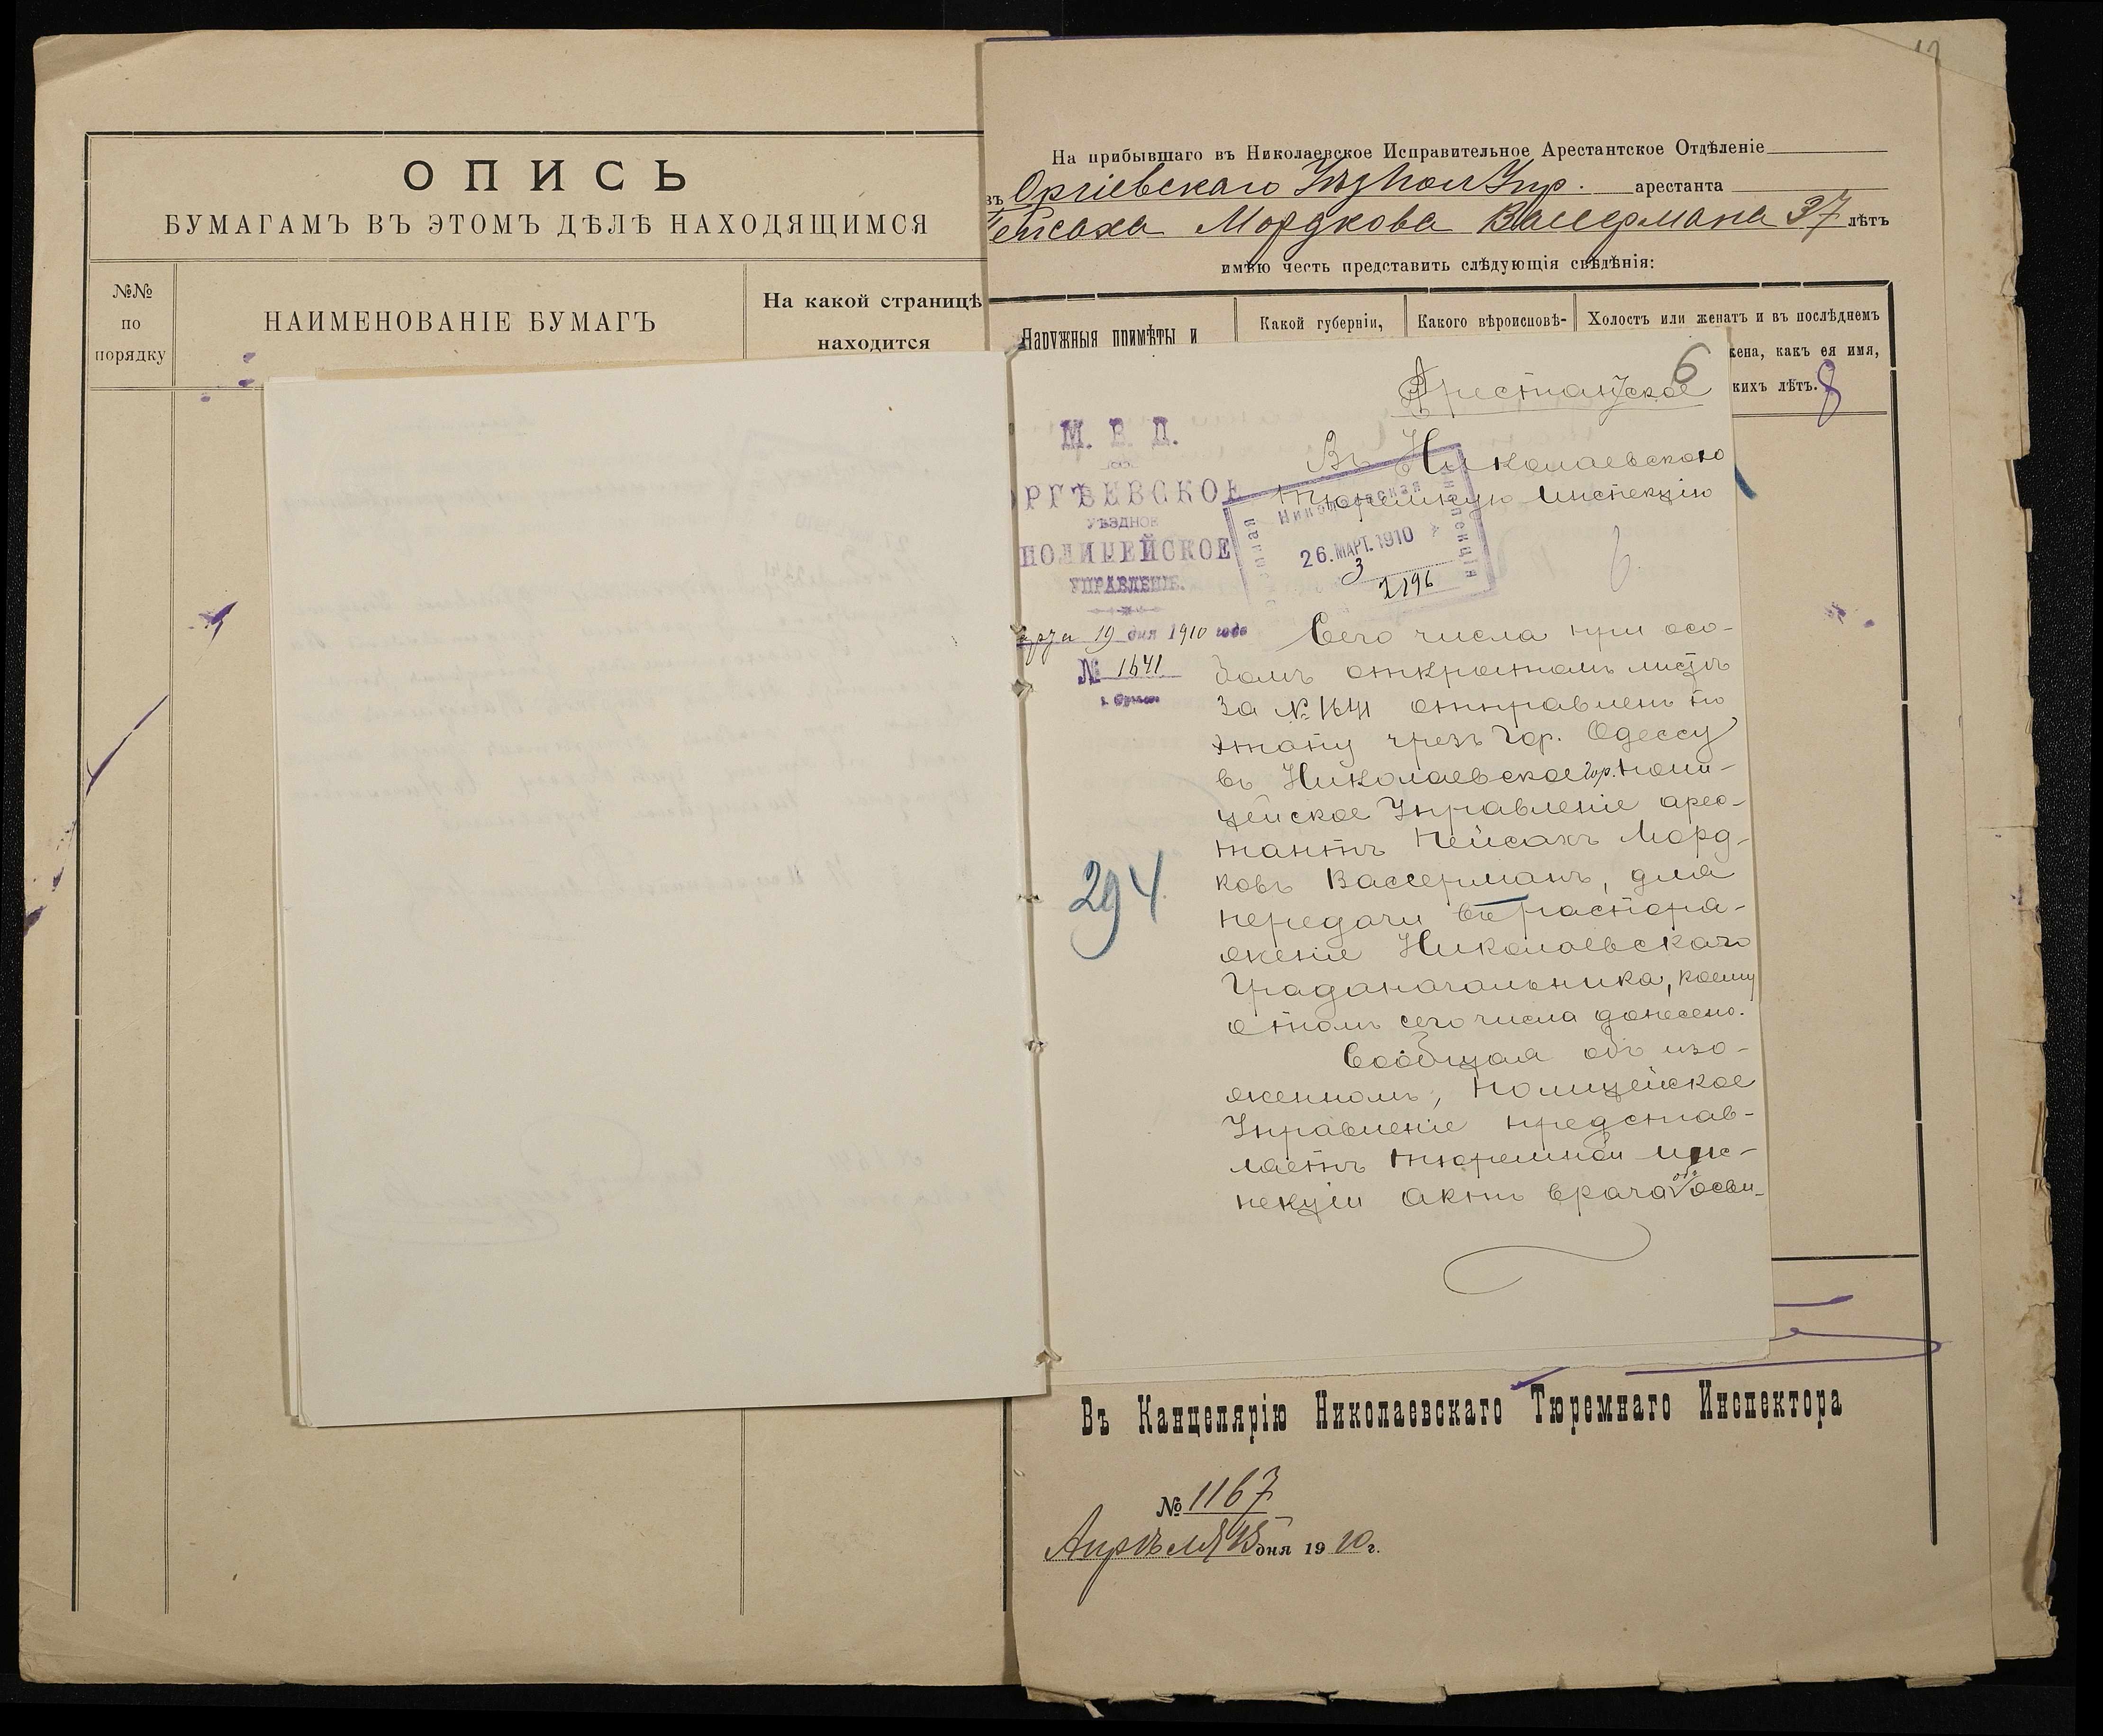 ОПИСЬ
БУМАГАМЪ ВЪ ЭТОМЪ ДѢЛѢ НАХОДЯЩИМСЯ
№№
по
порядку
НАИМЕНОВАНІЕ БУМАГЪ
На какой страницѣ
находится
На прибывшаго въ Николаевское Исправительное Арестантское Отдѣленіе
въ Оргіевскаго Уѣзпол Упр. арестанта
Пейсаха Мордкова Вассермана 37 лѣтъ
имѣю честь представить слѣдующія свѣдѣнія:
Наружныя примѣты и
Какой губерніи,
Какого вѣроисповѣ-
Холостъ или женатъ и въ послѣднемъ
жена, какъ ея имя,
кихъ лѣтъ. 8
6
Арестантское
М. В. Д.
ОРГѢЕВСКОЕ
УѢЗДНОЕ
ПОЛИЦЕЙСКОЕ
УПРАВЛЕНІЕ.
Марта 19 дня 1910 года
№ 1641
г. Оргѣевъ
Въ Николаевскою
Тюремную Инспекцію
Николаевская
Инспекція
26. МАРТ. 1910
3
2196
6
294
Сего числа при осо-
бомъ открытомъ листѣ
за № 1641 отправленъ по
этапу чрезъ гор. Одессу
въ Николаевское гор. поли-
цейское Управленіе арес-
тантъ Пейсахъ Морд-
ковъ Вассерманъ, для
передачи въ распоря-
женіе Николаевскаго
Градоначальника, коему
о томъ сего числа донесено.
Сообщая объ изло-
женномъ, Полицейское
Управленіе представ-
ляетъ тюремной инс-
пекціи актъ врача объ осви-
Въ Канцелярію Николаевскаго Тюремнаго Инспектора
№ 1167
Апрѣля 15 дня 1910 г.